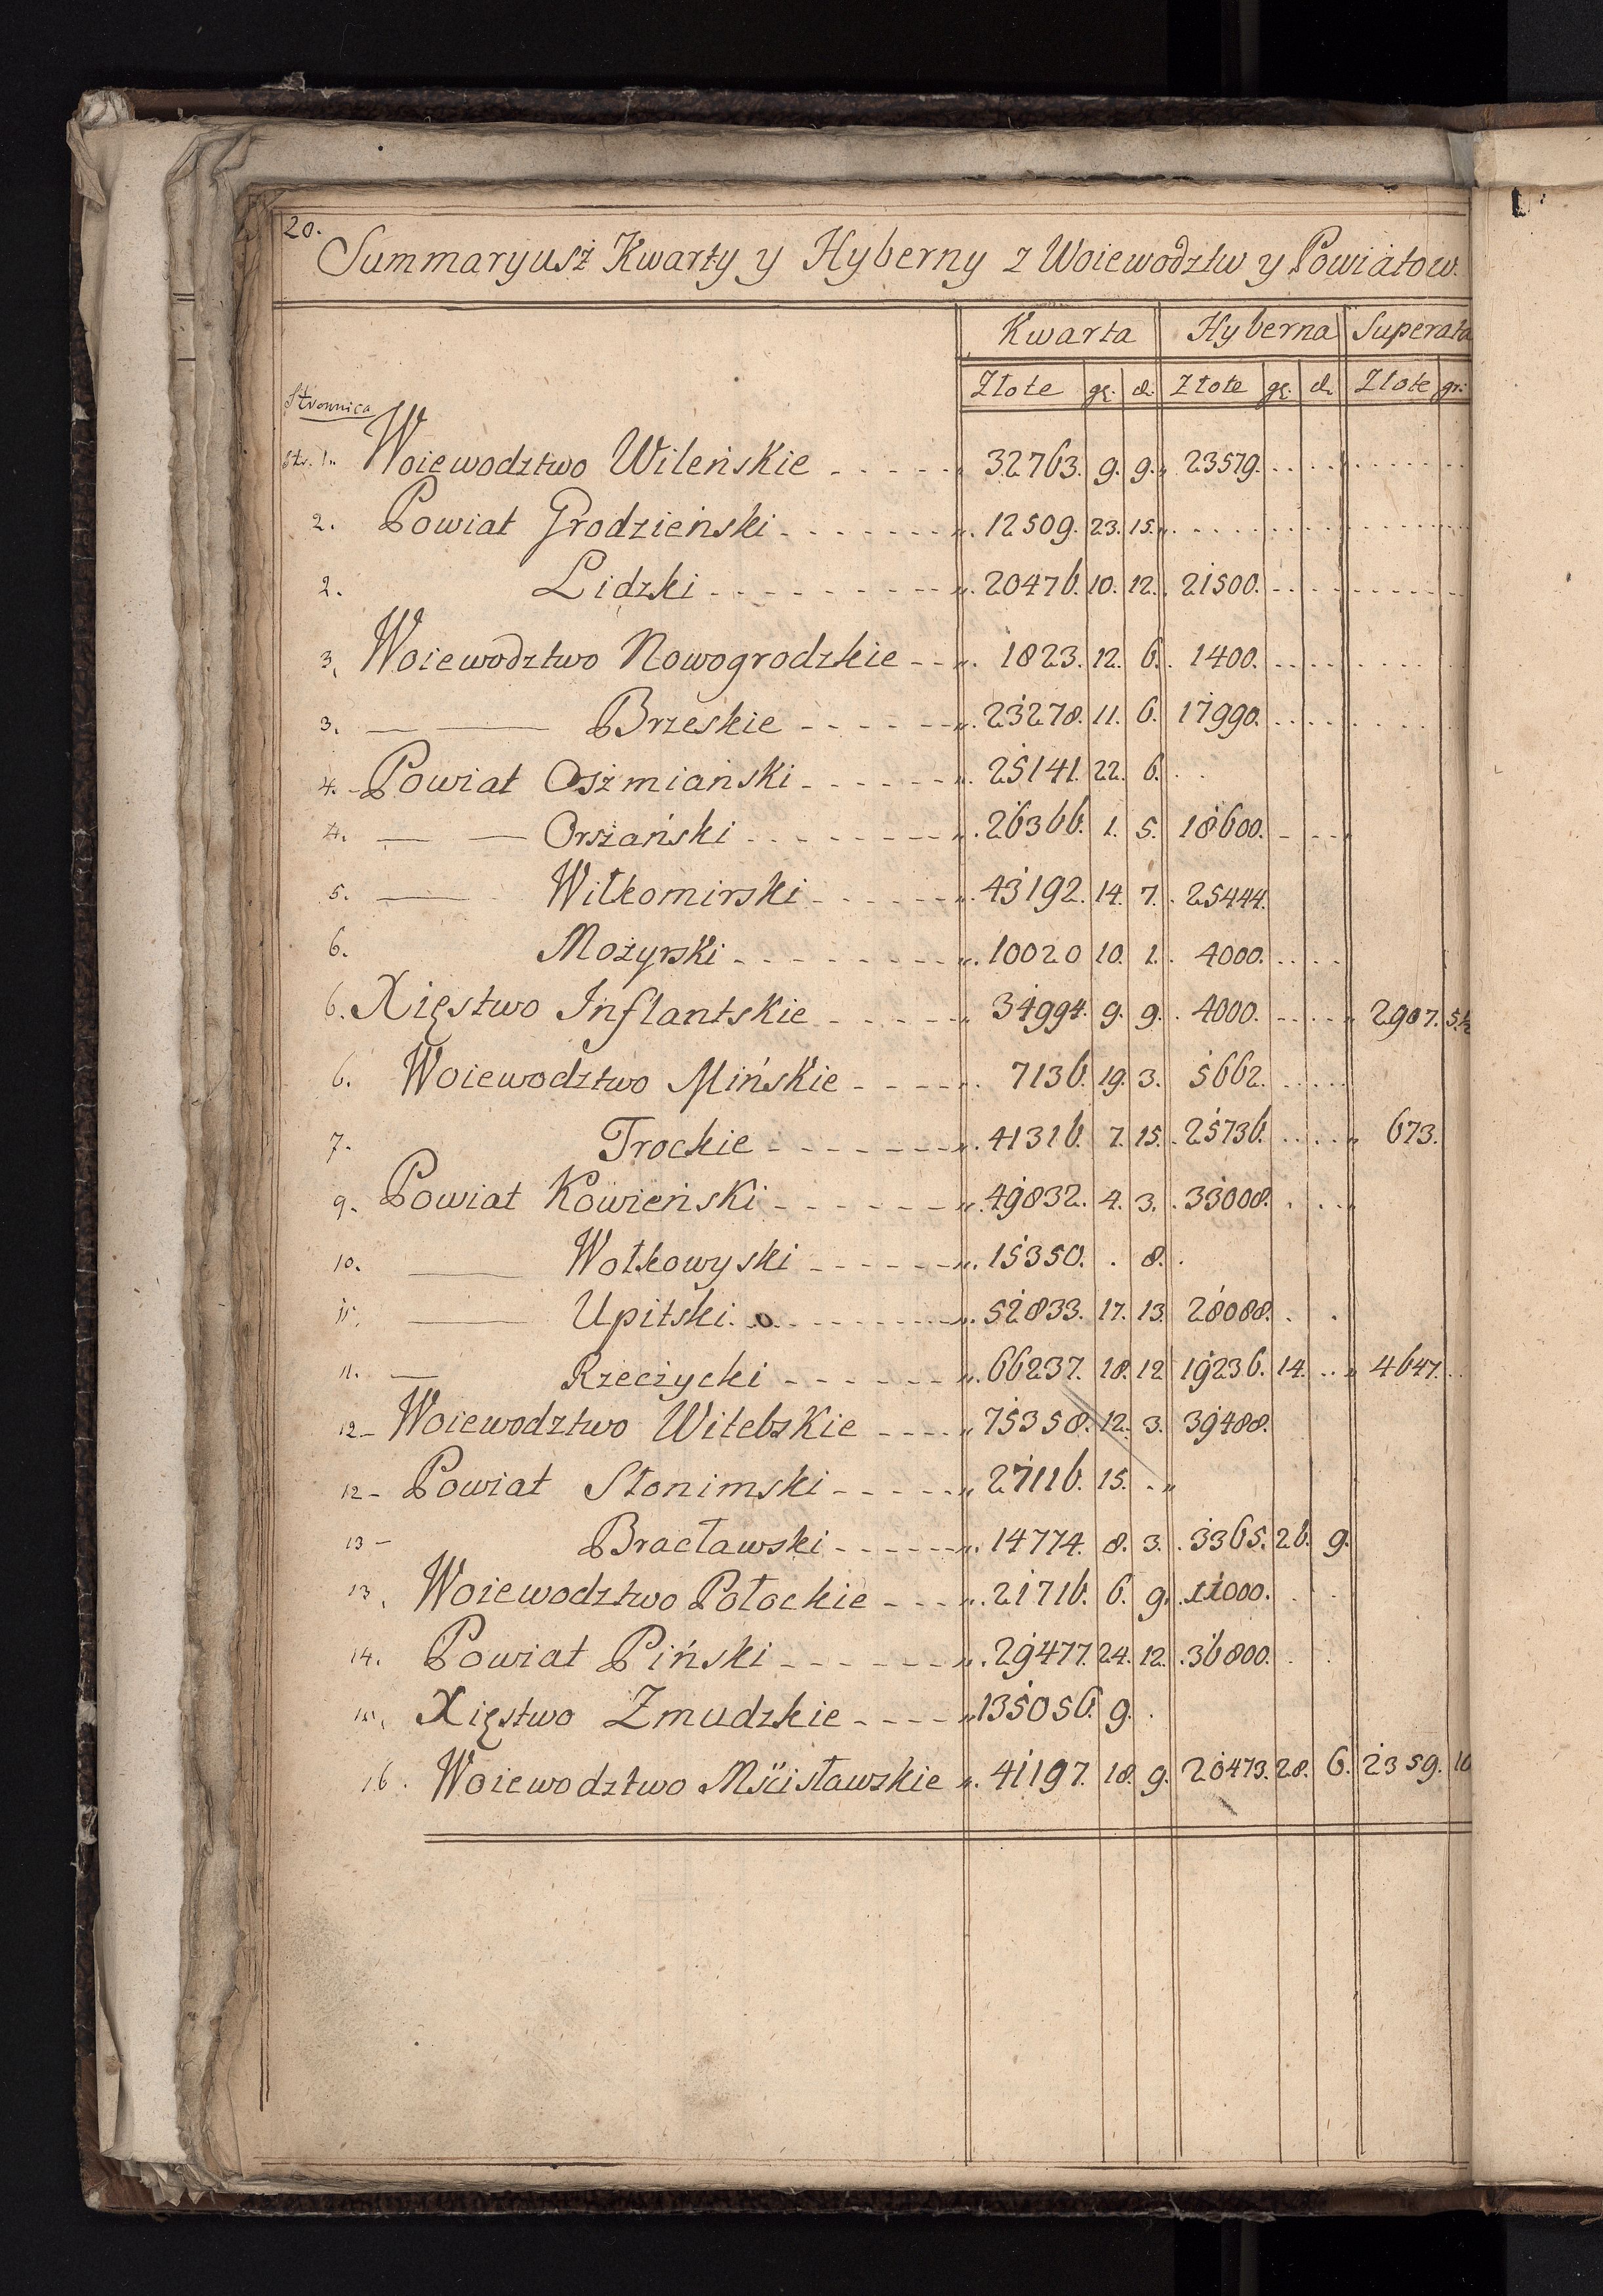 20.
Summaryusż Kwarty y Hyberny z Woiewodztw y Powiatow.
Kwarta Hyberna Superata
Złote gr. d. Złote gr. d. Złote gr:
Stronnica
Str. 1. Woiewodztwo Wileńskie 32763. 9. 9. 23579.
2. Powiat Grodzieński 12509. 23. 15.
2. Lidzki 20476. 10. 12. 21500.
3. Woiewodztwo Nowogrodzkie 1823. 12. 6. 1400.
3. Brzeskie 23278. 11. 6. 17990.
4. Powiat Oszmiański 25141. 22. 6.
4. Orszański 26366. 1. 5. 18600.
5. Wiłkomirski 43192. 14. 7. 25444.
6. Możyrski 10020 10. 1. 4000.
6. Xięstwo Inflantskie 34994. 9. 9. 4000. 2907. 5.
6. Woiewodztwo Mińskie 7136. 19. 3. 5662.
7. Trockie 41316. 7. 15. 25736. 673.
9. Powiat Kowieński 49832. 4. 3. 33008.
10. Wołkowyski 15350. . 8.
11. Upitski 52833. 17. 13. 28088.
11. Rzeczycki 66237. 18. 12 19236. 14. 4647.
12 Woiewodztwo Witebskie 75358. 12. 3. 39488.
12 Powiat Słonimski 27116. 15.
13 Bracławski 14774. 8. 3. 3365. 26. 9.
13. Woiewodztwo Połockie 21716. 6. 9. 11000.
14. Powiat Piński 29477. 24. 12. 36800.
Xięstwo Zmudzkie 135056. 9.
16. Woiewodztwo Mścisławskie 41197. 18. 9. 20473. 28. 6. 2359. 10